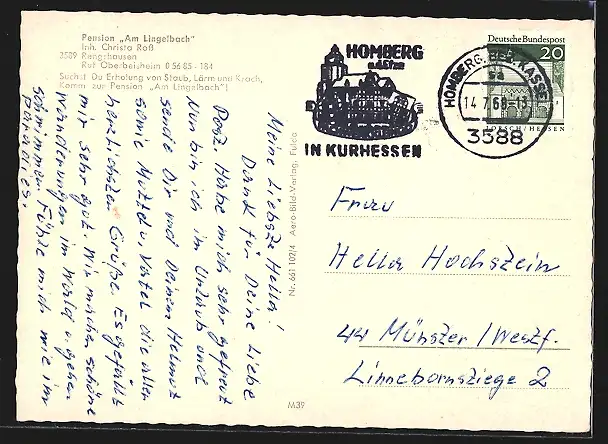 Pension „Am Lingelbach"
Inh. Christa Roß
3589 Rengshausen
Ruf Oberbeisheim 0 56 85 - 184
Suchst Du Erholung von Staub, Lärm und Krach,
Komm zur Pension „Am Lingelbach"!
HOMBERG
IN KURHESSEN
HOMBERG, BEZ. KASSEL
sa
14.7.68-13
3588
Deutsche Bundespost
20
LORSCH/HESSEN
Meine Liebste Hella!
Dank für Deine Liebe
Post. Habe mich sehr gefreut
Nun bin ich im Urlaub und
sende Dir und Deinen Helmut
sowie Mutti u. Vater die allen
herzlichsten Grüße. Es gefällt
mir sehr gut. Wir machen schöne
Wanderungen im Wald u. gehen
schwimmen. Fühle mich wie im
Paradies.
Nr. 661 102/4 Aero-Bild-Verlag, Fulda
M39
Frau
Hella Hochstein
44 Münster/Westf.
Linnebornstiege 2